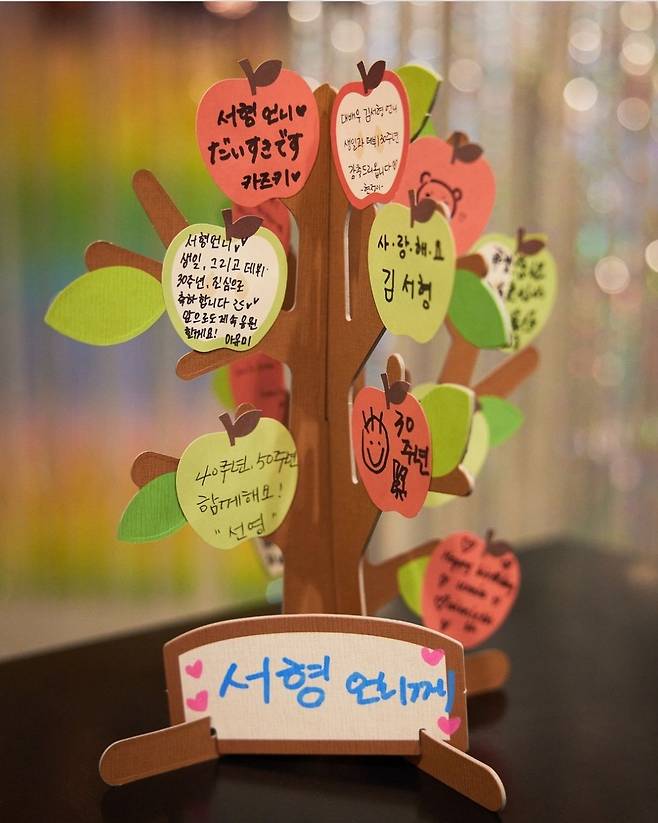 서형 언니♥
だいすきです
카즈키♥
대배우 김서형 언니
생일과 데뷔 30주년
감축드리옵니다
사·랑·해·요
김서형
서형언니♥♥
생일, 그리고 데뷔
30주년, 진심으로
축하합니다
앞으로도 계속 응원
할게요! 아유미
30
주년
40주년, 50주년
함께해요!
"선영"
Happy birthday
서형 언니께